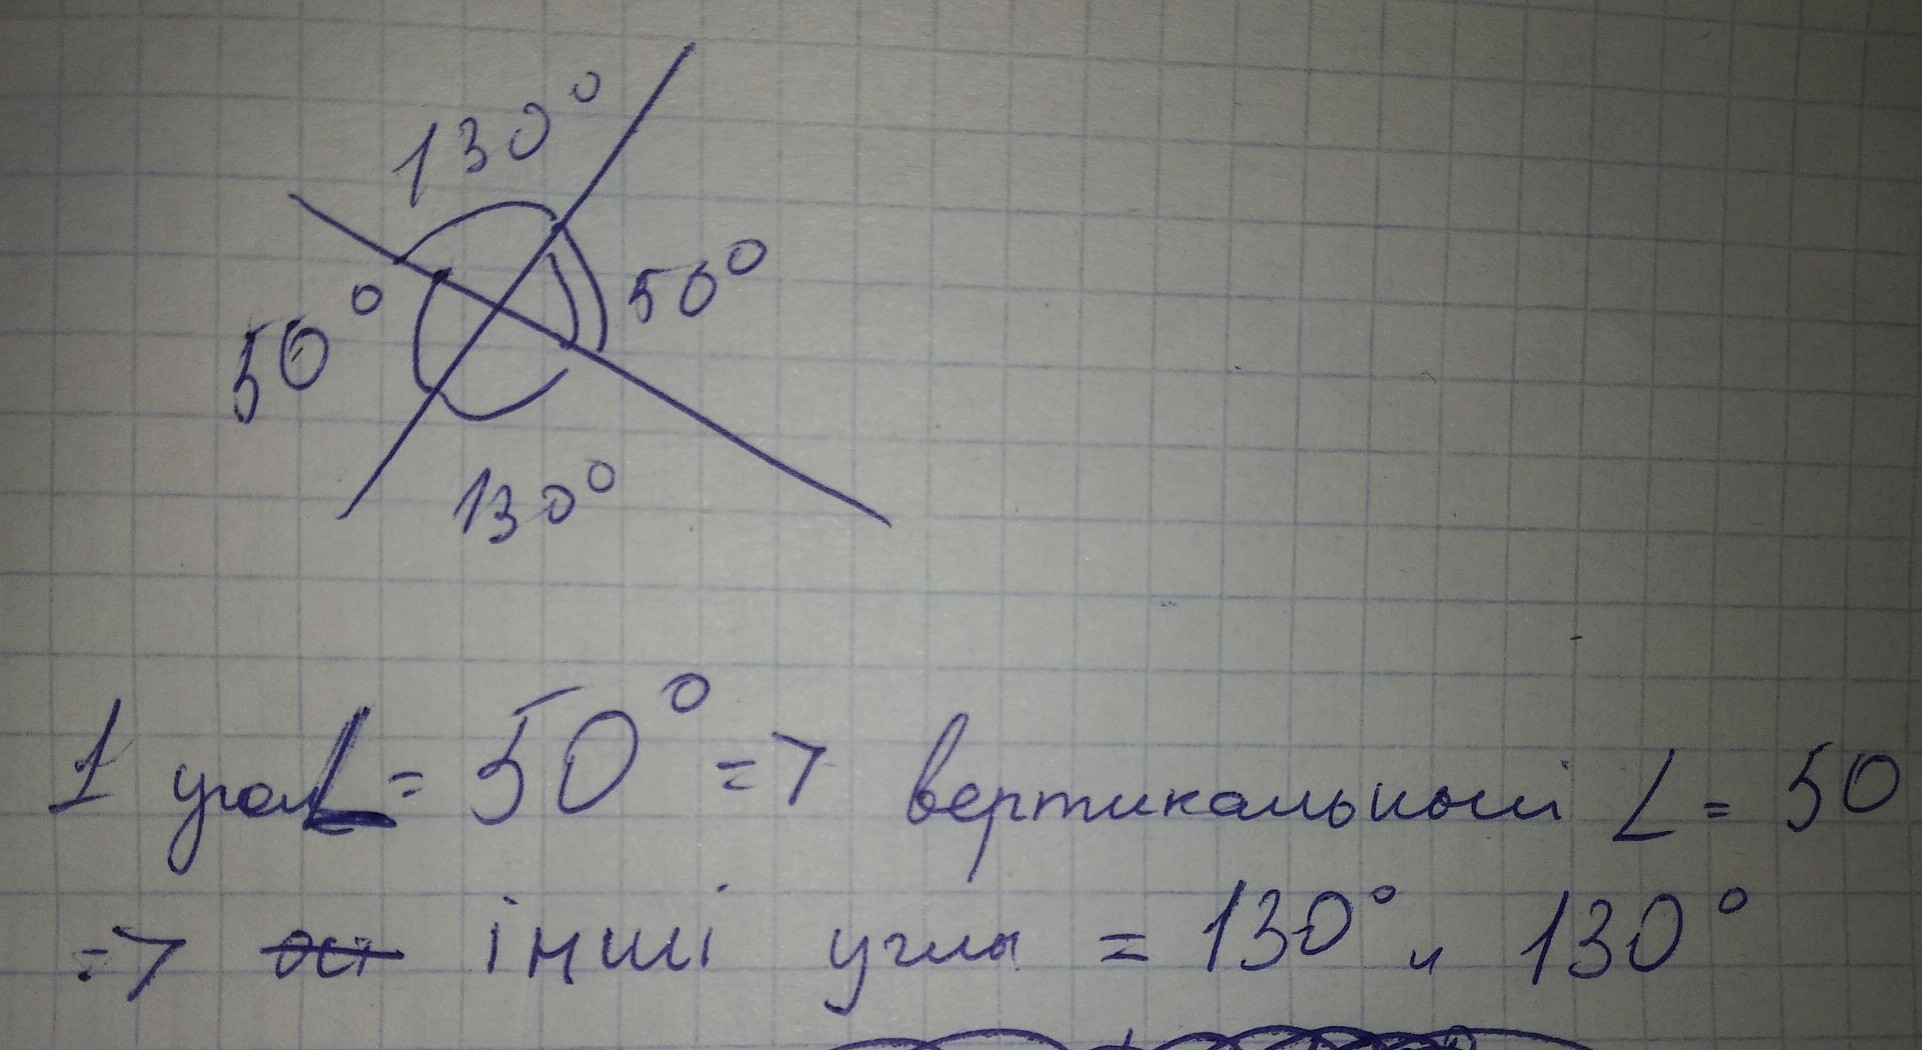 130°
50°
50°
130°
1 угол = 50° => вертикальный ∠ = 50
=> інші углы = 130° и 130°